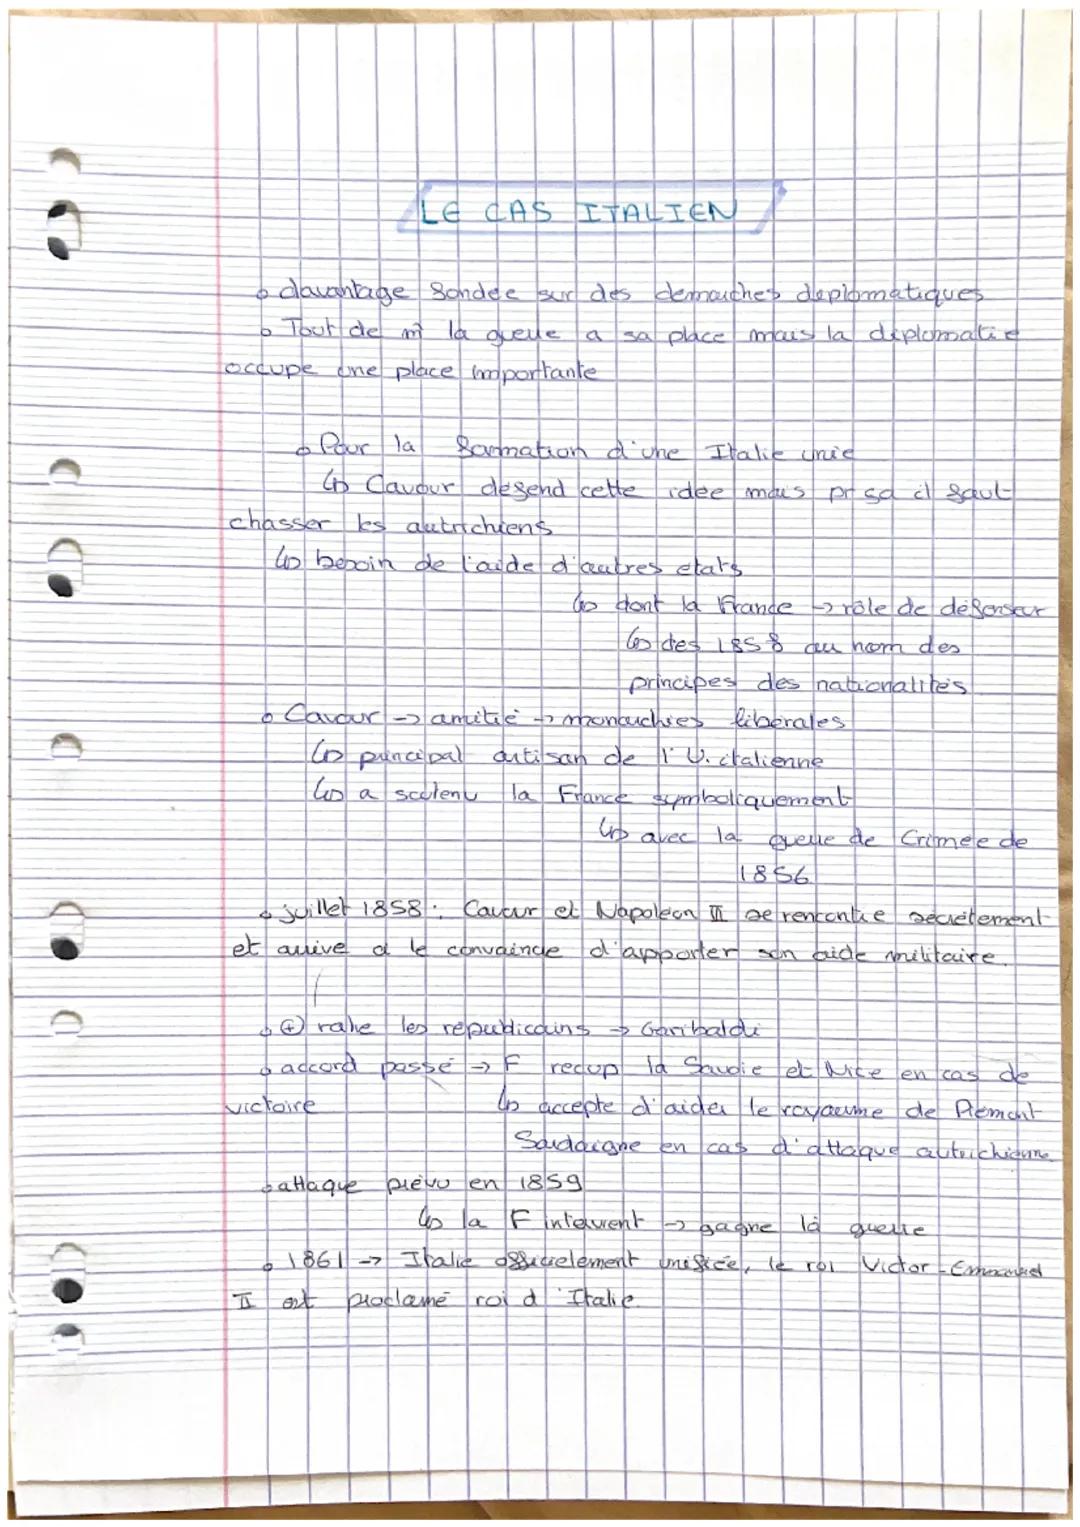 LE CAS ITALIEN
davantage fondée sur des démarches déplomatiques
Tout de m̂ la guerre a sa place mais la diplomatie
occupe une place importante
Pour la formation d'une Italie unie
↳ Cavour défend cette idée mais pr sa il faut
chasser les autrichiens
↳ besoin de l'aide d'autres etats
↳ dont la France → rôle de défenseur
↳ des 1858 au nom des
principes des nationalités
Cavour → amitié → monarchies libérales
↳ principal artisan de l'U. italienne
↳ a soutenu la France symboliquement
↳ avec la guerre de Crimée de
1856
juillet 1858 : Cavour et Napoléon III se rencontre secrétement
et arrive à le convaincre d'apporter son aide militaire.
⊕ ralie les républicains → Garibaldi
accord passé → F récup la Savoie et Nice en cas de
victoire ↳ accepte d'aider le royaume de Piémont
Sardaigne en cas d'attaque autrichienne
attaque prévu en 1859
↳ la F intervient → gagne la guerre
1861 → Italie officielement unifiée, le roi Victor-Emmanuel
II est proclamé roi d'Italie.